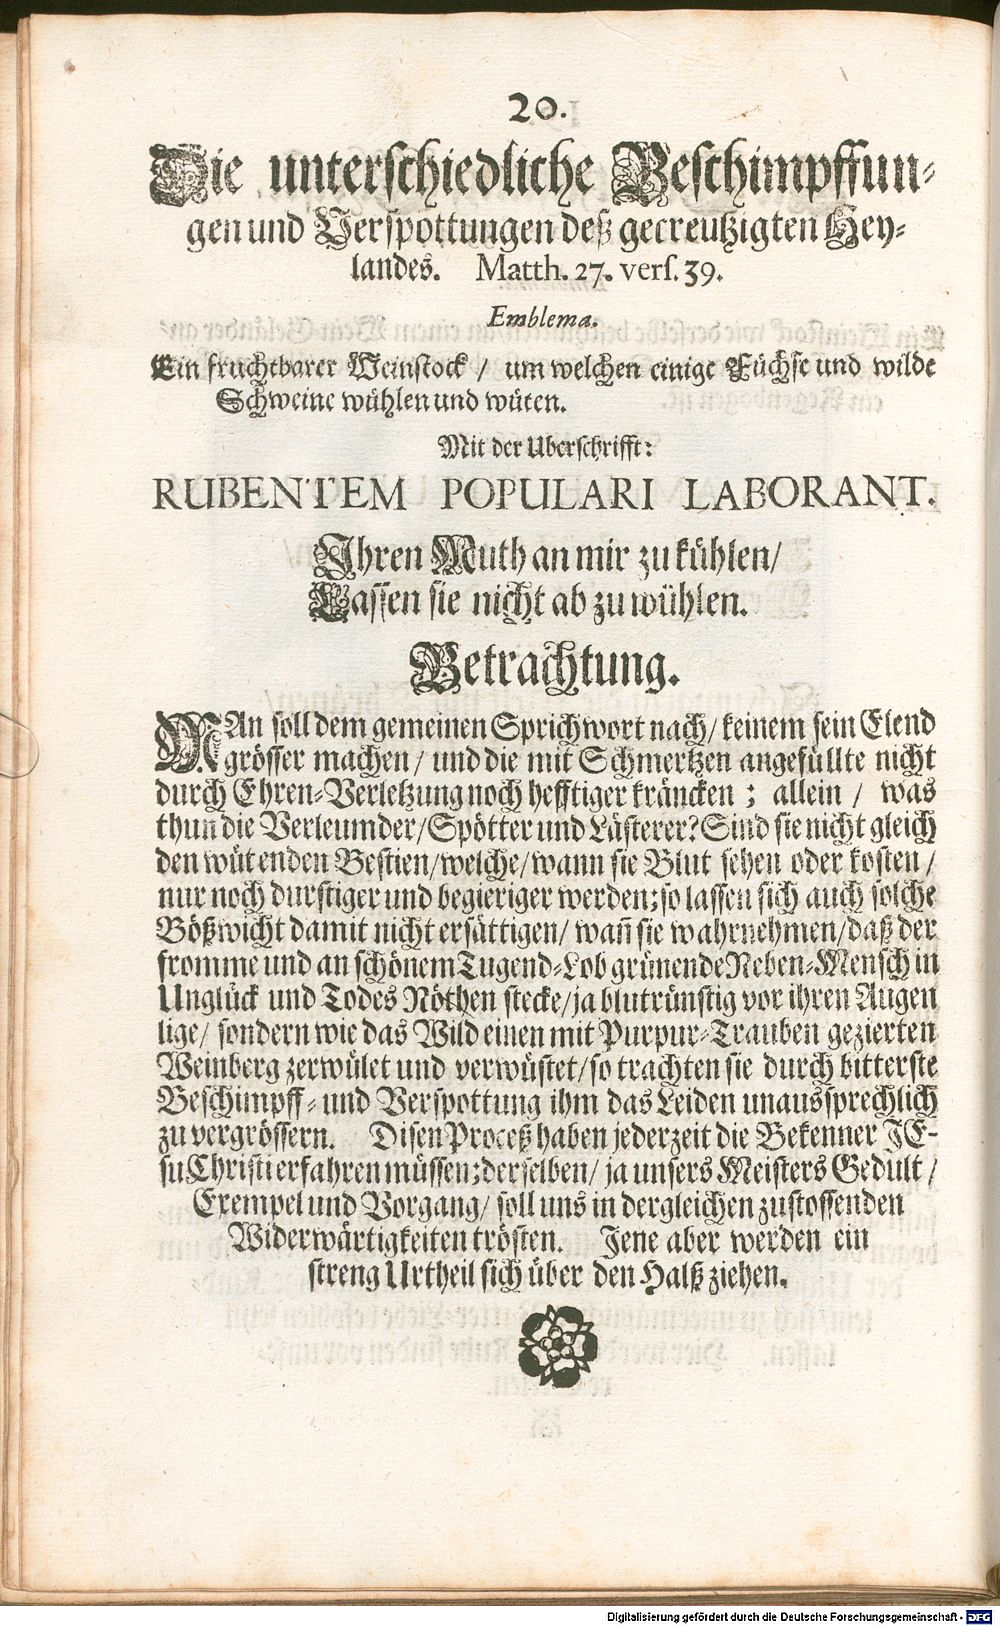 20.
Die unterschiedliche Beschimpffun-
gen und Verspottungen deß gecreutzigten Hey-
landes. Matth. 27. vers. 39.
Emblema.
Ein fruchtbarer Weinstock / um welchen einige Füchse und wilde
Schweine wühlen und wüten.
Mit der Uberschrifft:
RUBENTEM POPULARI LABORANT.
Ihren Muth an mir zu kühlen/
Lassen sie nicht ab zu wühlen.
Betrachtung.
MAn soll dem gemeinen Sprichwort nach/ keinem sein Elend
grösser machen/ und die mit Schmertzen angefüllte nicht
durch Ehren-Verletzung noch hefftiger kräncken; allein / was
thun die Verleumder/Spötter und Lästerer? Sind sie nicht gleich
den wütenden Bestien/welche/wann sie Blut sehen oder kosten /
nur noch durstiger und begieriger werden; so lassen sich auch solche
Bößwicht damit nicht ersättigen/ wañ sie wahrnehmen/daß der
fromme und an schönem Tugend-Lob grünende Neben-Mensch in
Unglück und Todes Nöthen stecke/ja blutrünstig vor ihren Augen
lige/ sondern wie das Wild einen mit Purpur-Trauben gezierten
Weinberg zerwület und verwüstet/so trachten sie durch bitterste
Beschimpff- und Verspottung ihm das Leiden unaussprechlich
zu vergrössern. Disen Proceß haben jederzeit die Bekenner JE-
su Christi erfahren müssen; derselben/ ja unsers Meisters Gedult /
Exempel und Vorgang/ soll uns in dergleichen zustossenden
Widerwärtigkeiten trösten. Jene aber werden ein
streng Urtheil sich über den Halß ziehen.
Digitalisierung gefördert durch die Deutsche Forschungsgemeinschaft - DFG